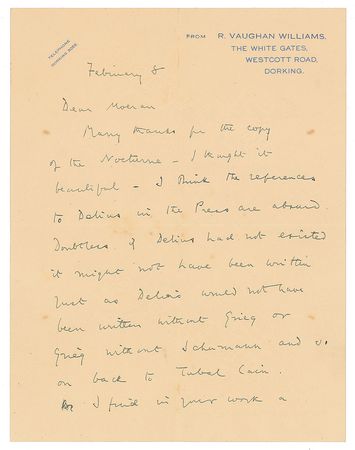 FROM R. VAUGHAN WILLIAMS.
THE WHITE GATES,
WESTCOTT ROAD,
DORKING.
TELEPHONE
DORKING
February 8
Dear Moeran
Many thanks for the copy
of the Nocturne - I thought it
beautiful - I think the references
to Delius in the Press are absurd.
Doubtless if Delius had not existed
it might not have been written
just as Delius would not have
been written without Grieg or
Grieg without Schumann and so
on back to Tubal Cain.
I find in your work a